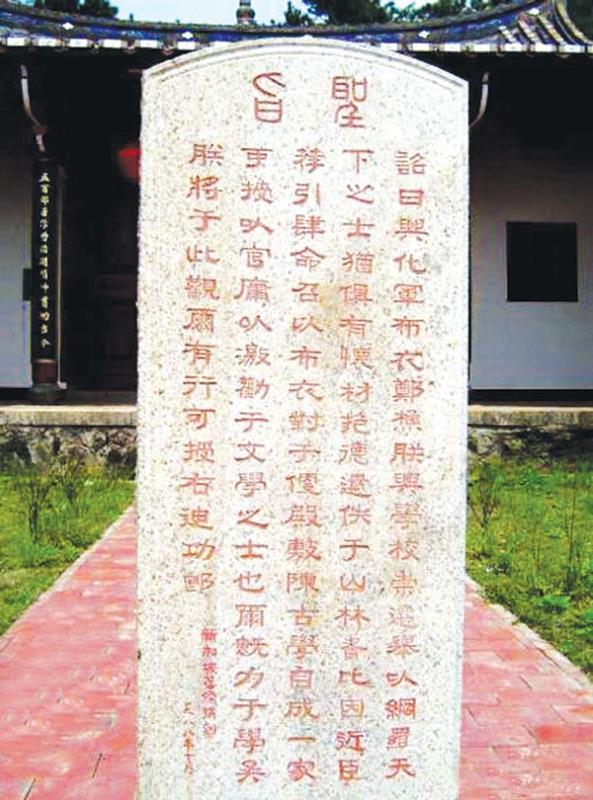 聖旨
詔曰興化軍布衣鄭樵朕興學校崇選舉以網羅天
下之士猶懼有懷材抱德遺佚于山林者比因近臣
荐引肆命召以布衣對于殿敷陳古學自成一家
授以官庸以激勸于文學之士也爾既力于學矣
朕將于此觀爾有行可授右迪功郎